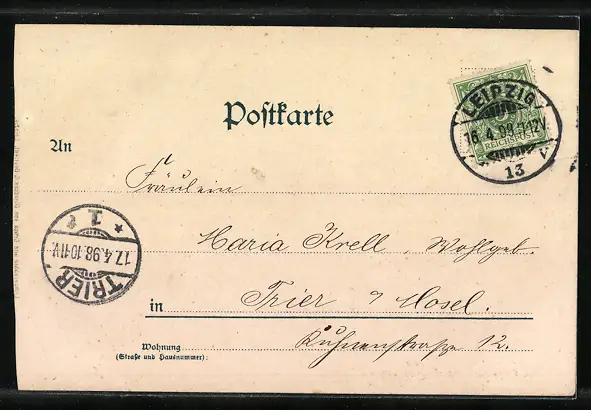 Postkarte
LEIPZIG
16.4.98.11-12V.
13
REICHSPOST
An
Fräulein
Maria Krell, Wohlgeb.
in Trier a/ Mosel.
Wohnung
(Straße und Hausnummer):
12.
TRIER
17.4.98.10-11V.
* 1 *